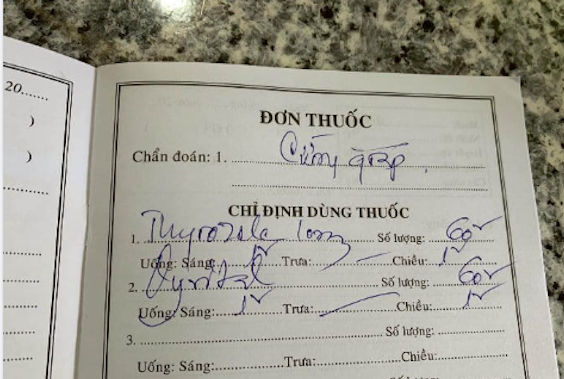 20.......
)
)
ĐƠN THUỐC
Chẩn đoán: 1. Cường giáp
CHỈ ĐỊNH DÙNG THUỐC
1. Thyrozole 10mg Số lượng: 60v
Uống: Sáng: 1v Trưa: / Chiều: 1v
2. Số lượng: 60v
Uống: Sáng: 1v Trưa: / Chiều: 1v
3. Số lượng:
Uống: Sáng: Trưa: Chiều: